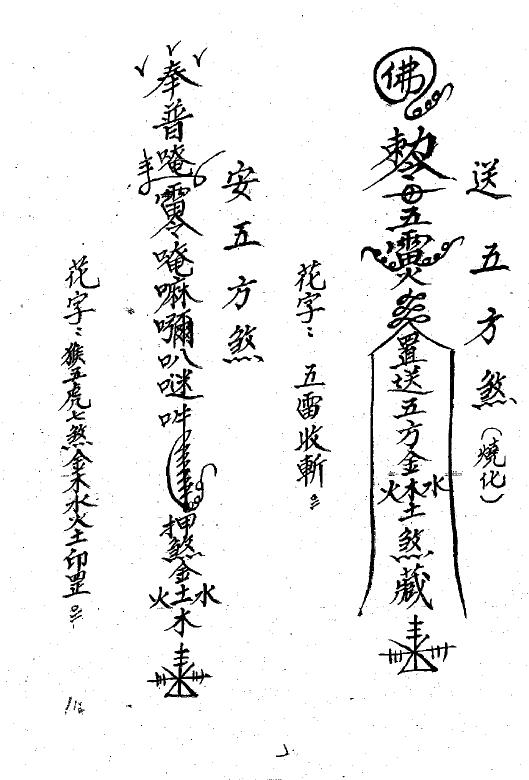 送五方煞(燒化)
佛
勅令
五雷火
置送五方金木水火土煞藏
花字:五雷收斬
安五方煞
奉普唵
雷令唵嘛嚩叭噠吽
押煞金水土火木
花字:猴五虎七煞金木水火土印罡